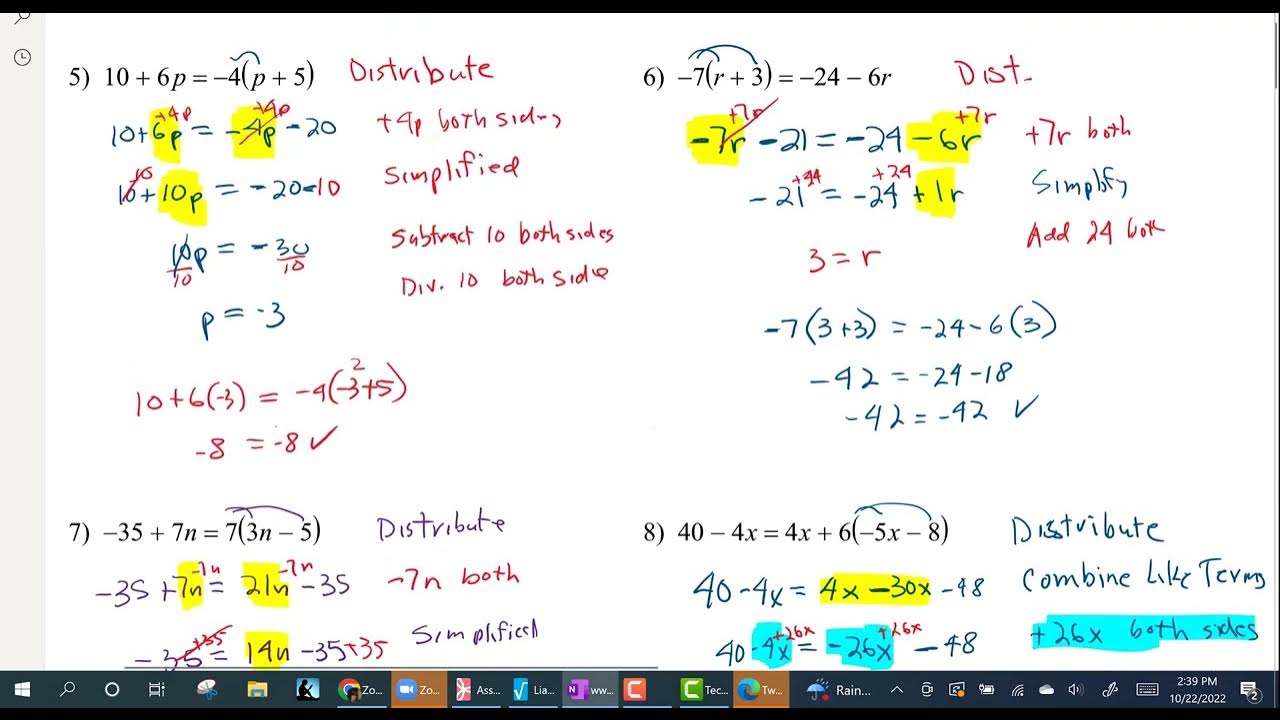 5) 10 + 6p = −4(p + 5) Distribute
+4p +4p
10+6p = -4p -20 +4p both sides
Simplified
10
10+10p = -20-10
Subtract 10 both sides
10p = -30
10 10
Div. 10 both side
p = -3
2
10+6(-3) = -4(-3+5)
-8 = -8 ✓
6) −7(r + 3) = −24 − 6r Dist.
+7r +7r
-7r -21 = -24 -6r +7r both
+24 +24
-21 = -24 +1r Simplify
Add 24 both
3 = r
-7(3+3) = -24-6(3)
-42 = -24-18
-42 = -42 ✓
7) −35 + 7n = 7(3n − 5) Distribute
-7n -7n
-35 +7n = 21n -35 -7n both
Simplified
+35
-35 = 14n -35+35
8) 40 − 4x = 4x + 6(−5x − 8) Distribute
Combine Like Terms
40-4x = 4x -30x -48
+26x +26x
40 -4x = -26x -48 +26x both sides
Zo...
Zo...
Ass...
Lia...
ww...
Tec...
Tw...
Rain...
2:39 PM
10/22/2022
2